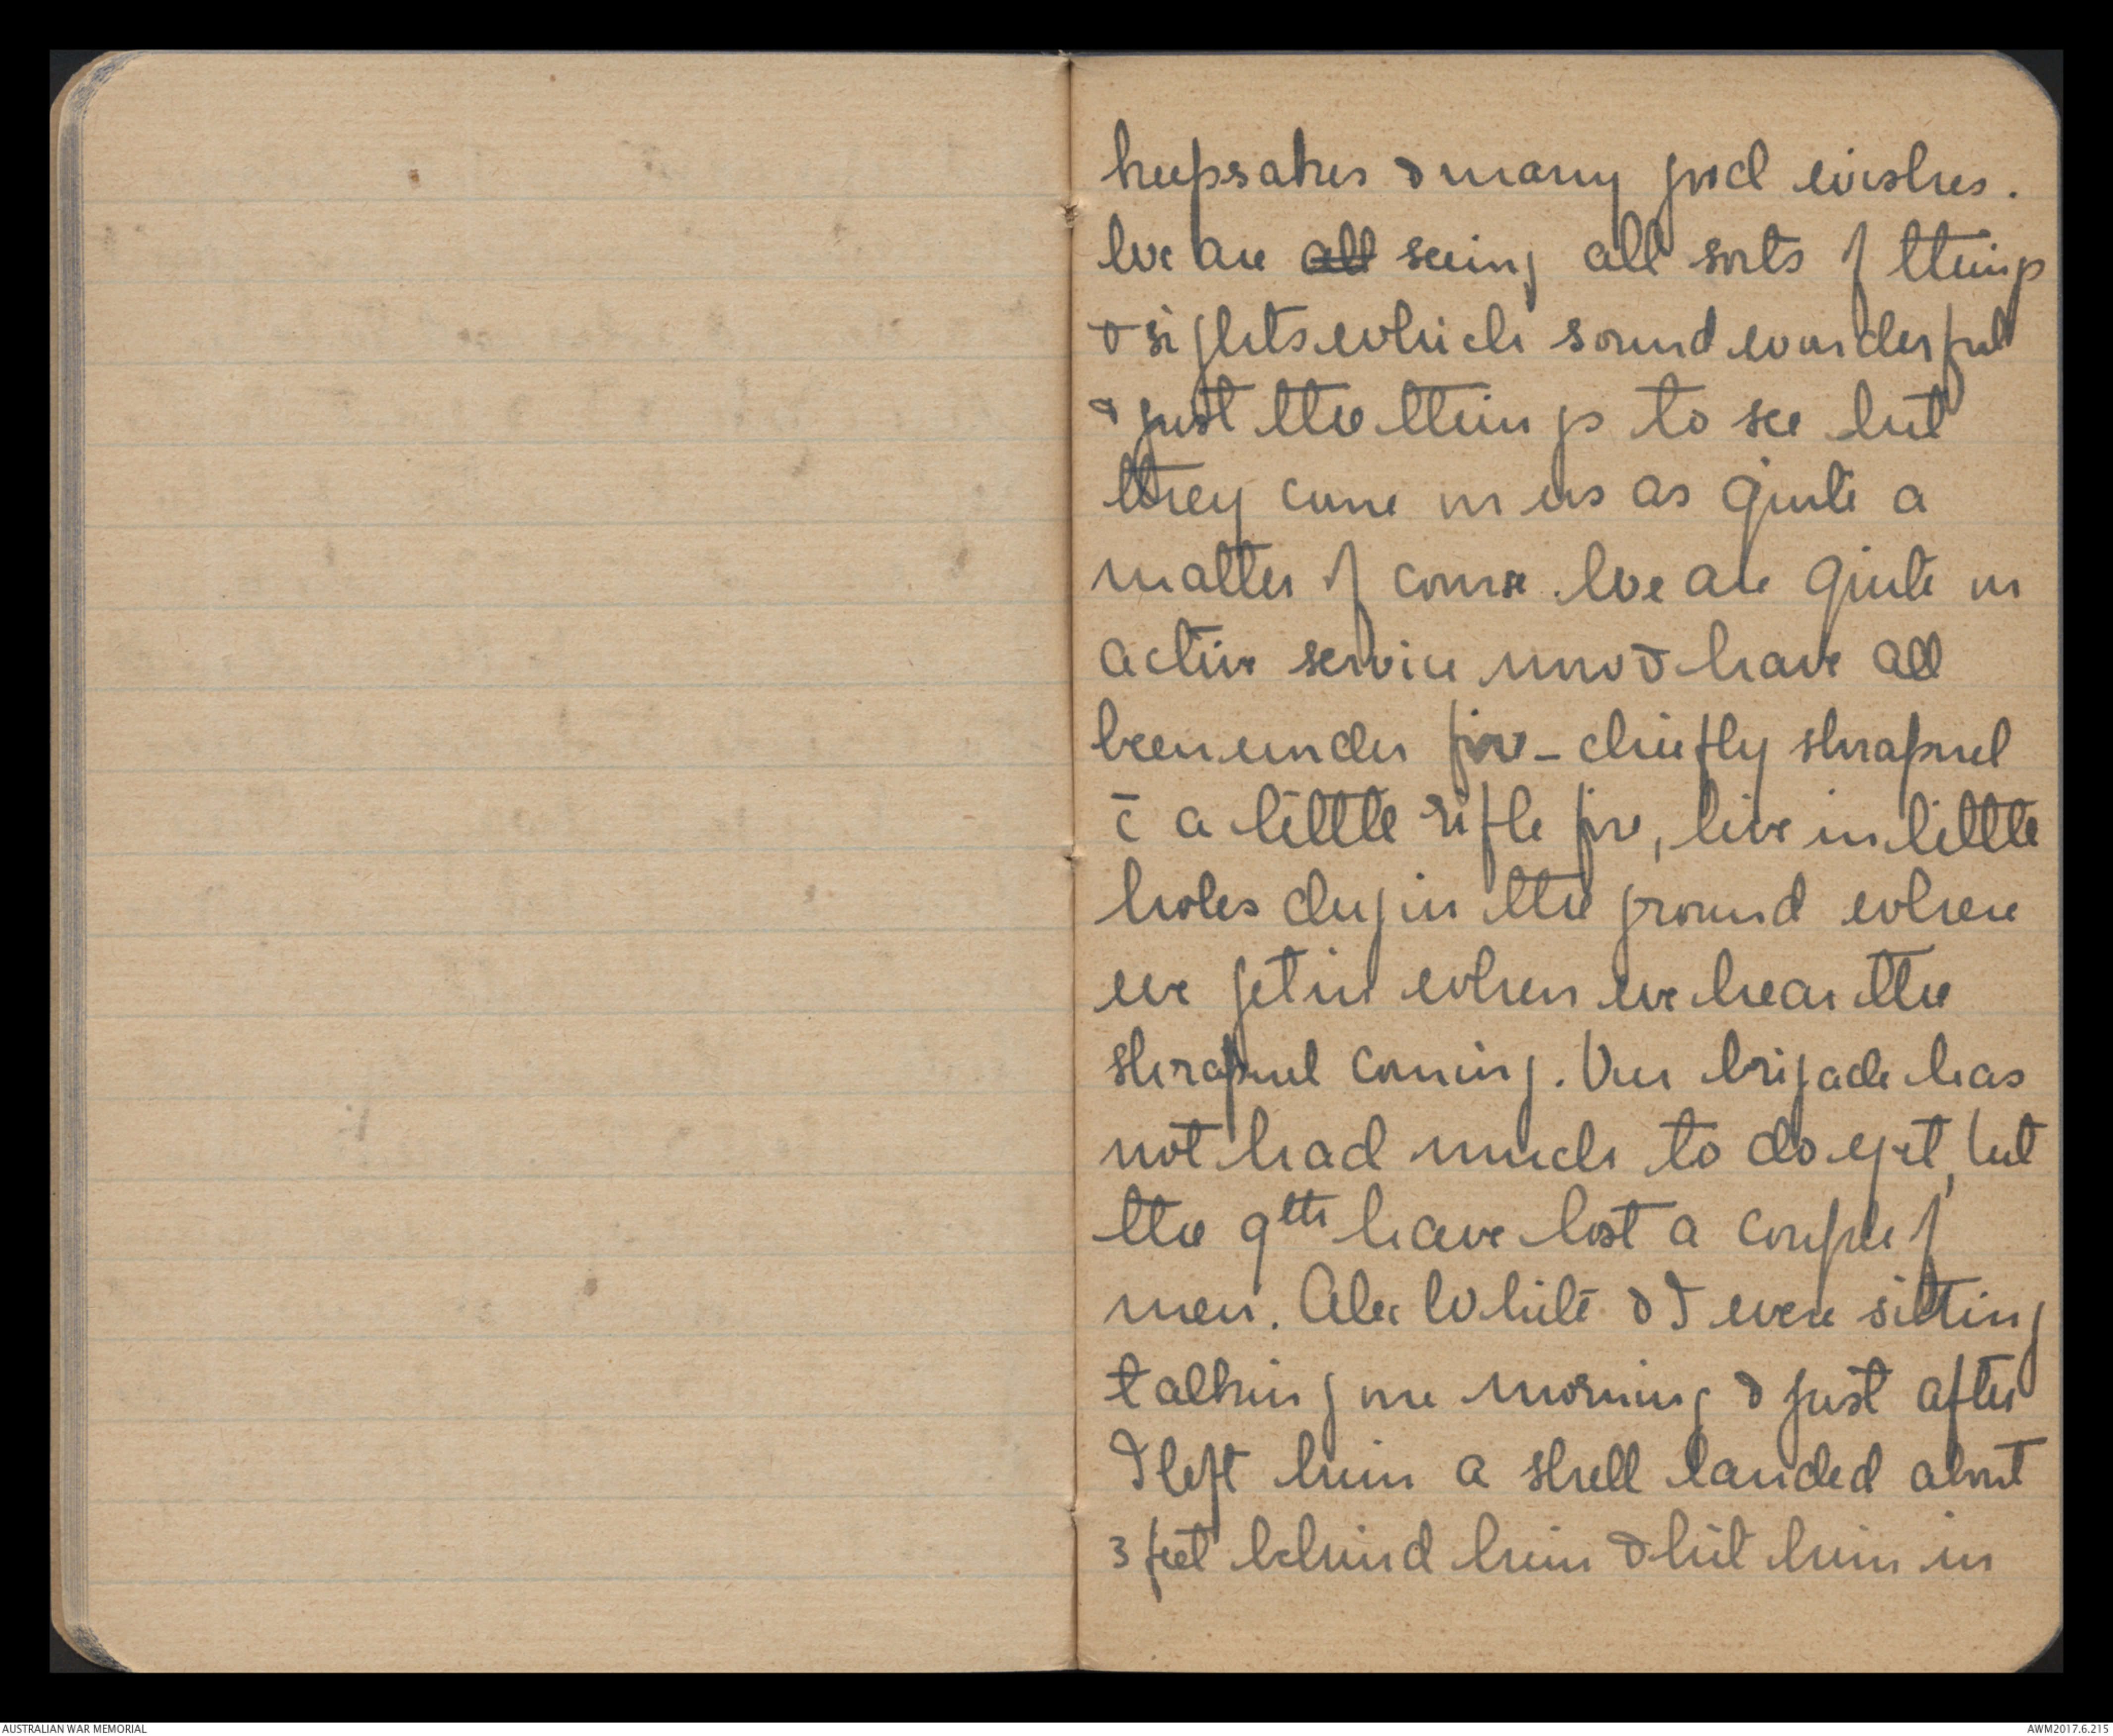 keepsakes & many good wishes.
We are all seeing all sorts of things
& sights which sound wonderful
& just the things to see but
they come on us as quite a
matter of course. We are quite on
active service now & have all
been under fire - chiefly shrapnel
c̄ a little rifle fire, live in little
holes dug in the ground where
we get in when we hear the
shrapnel coming. Our brigade has
not had much to do yet, but
the 9th have lost a couple of
men. Alec White & I were sitting
talking one morning & just after
I left him a shell landed about
3 feet behind him & hit him in
AUSTRALIAN WAR MEMORIAL
AWM2017.6.215